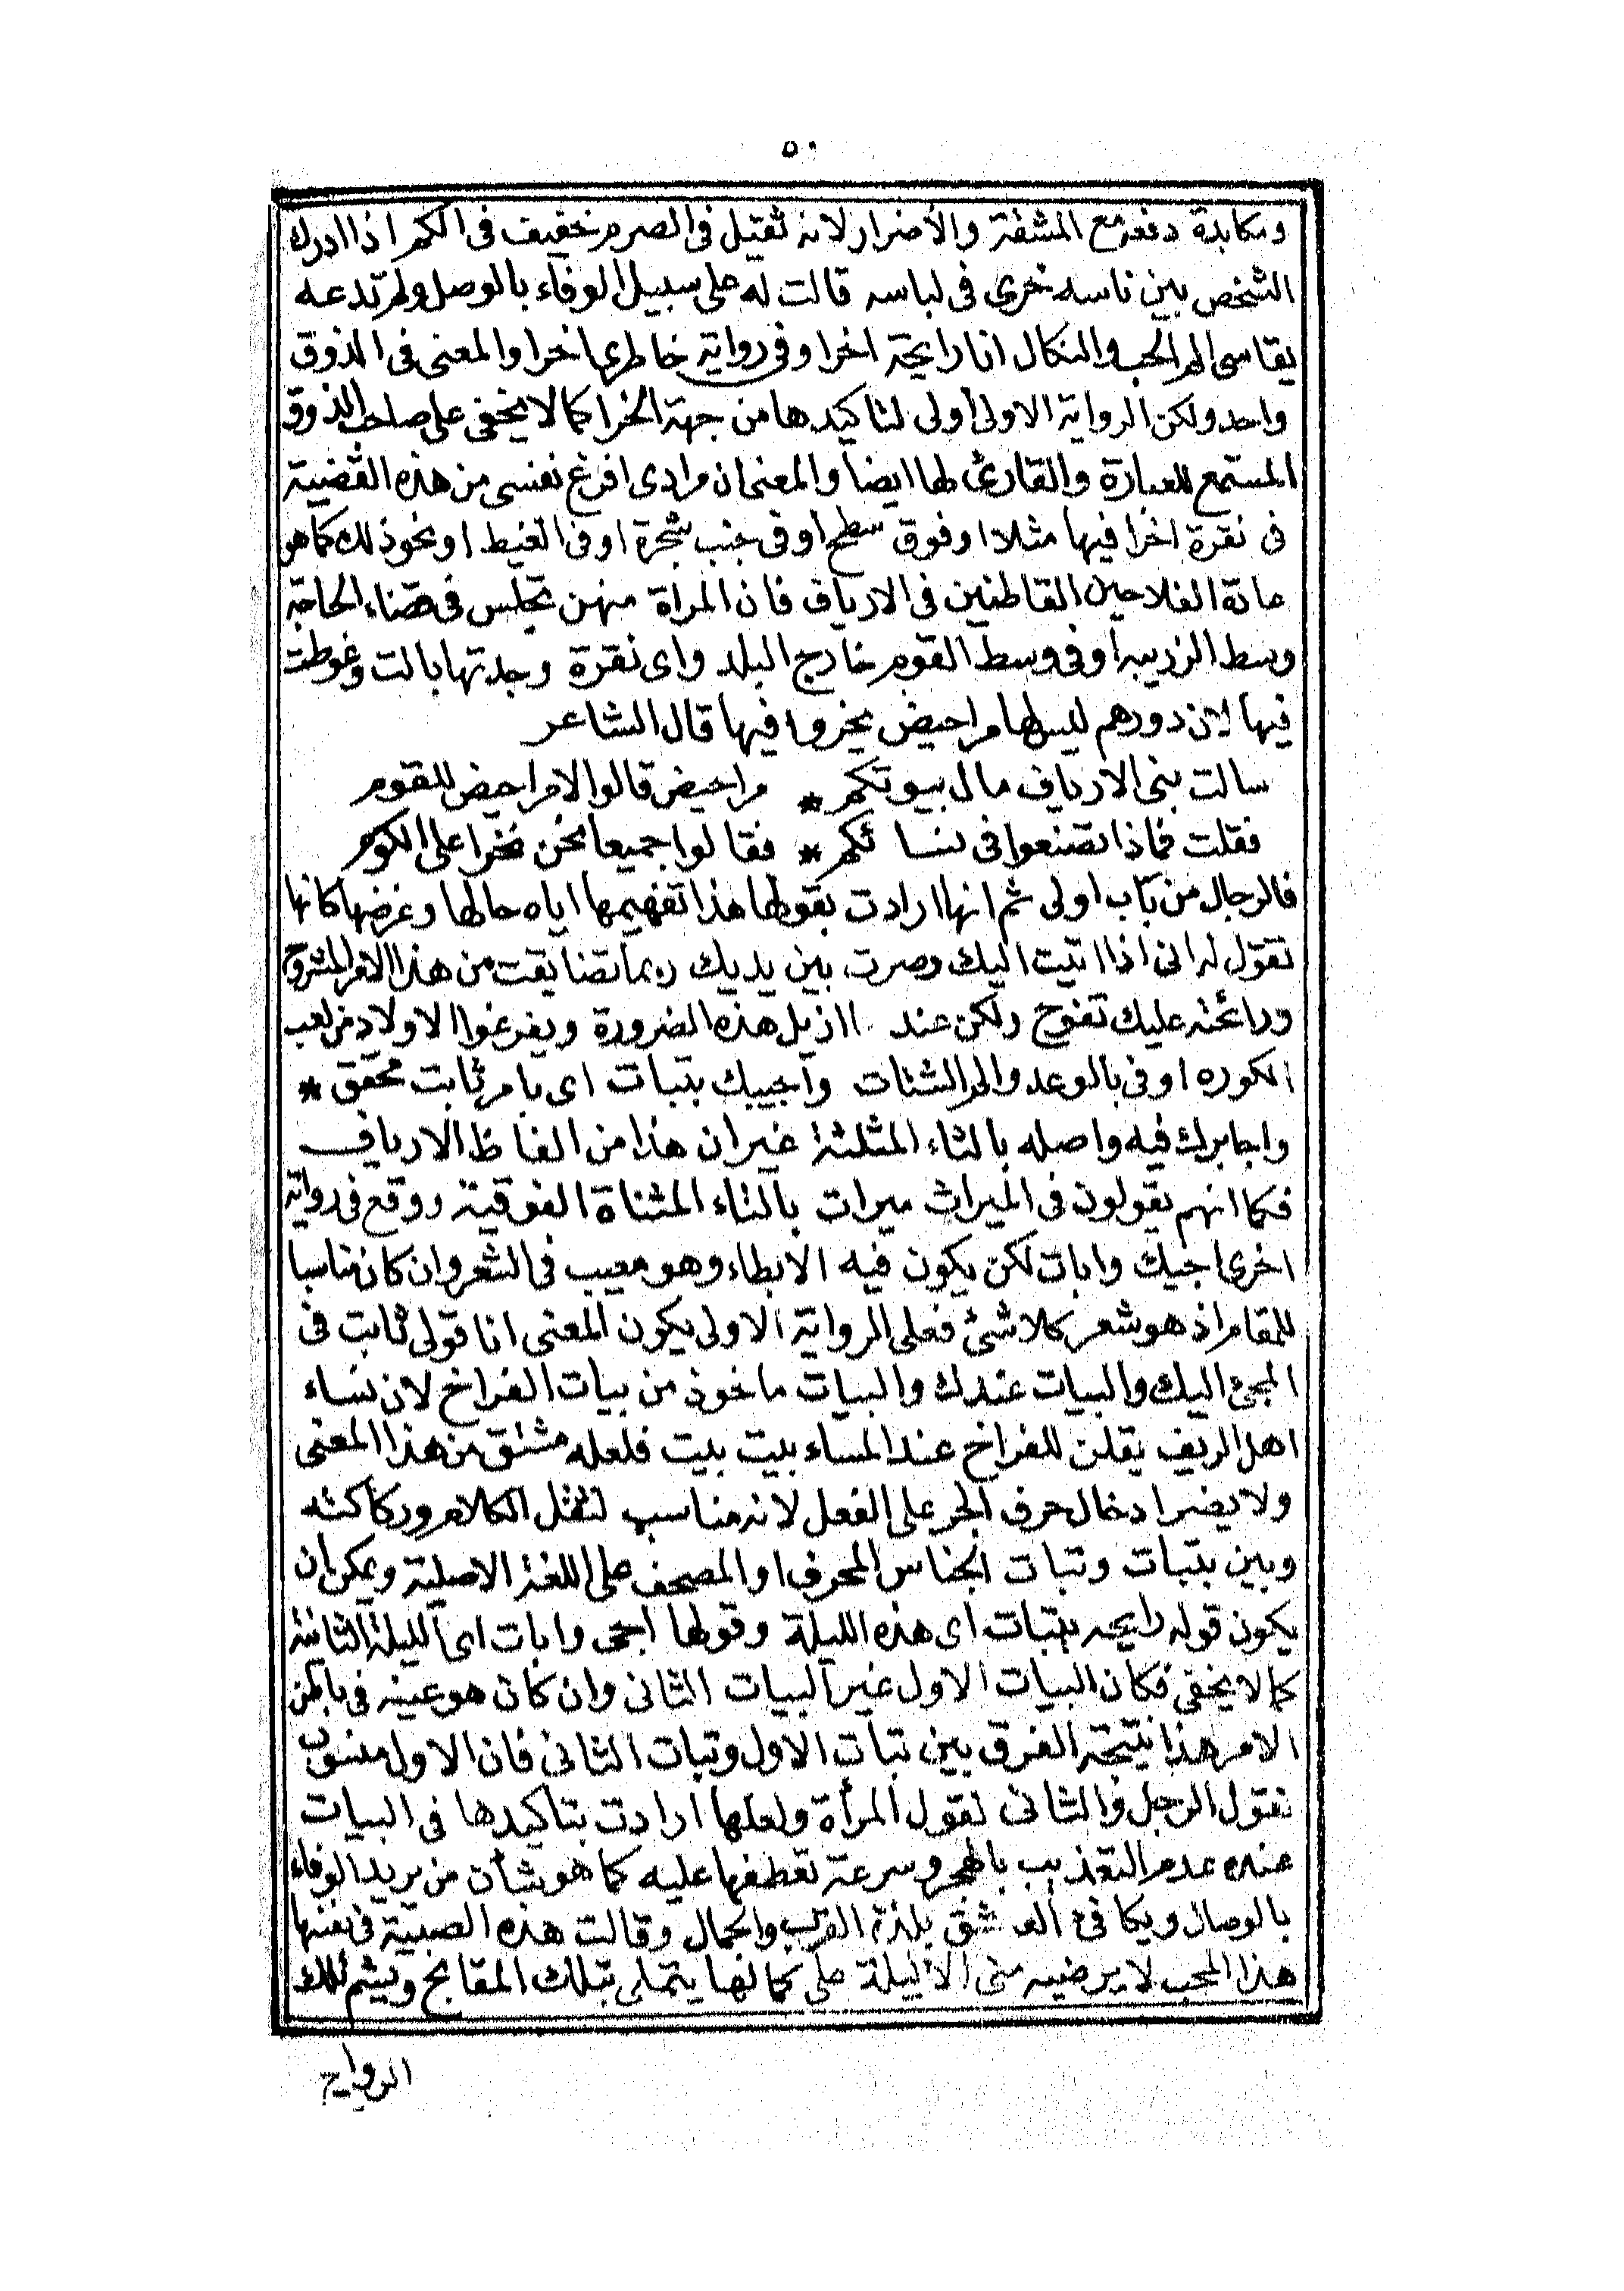 ٥٠
ومكابدة دفعه مع المشقة والأضرار لانه ثقيل فى الصرم خفيف فى الكم اذا ادرك
الشخص بين ناسه خرى فى لباسه قالت له على سبيل الوفاء بالوصل ولم تدعه
يقاسى الم الحب والنكال انا رايحة اخرا وفى رواية خاطرى اخرا والمعنى فى الذوق
واحد ولكن الرواية الاولى أولى لتاكيدها من جهة الخرا كما لا يخفى على صاحب الذوق
المستمع للعبارة والقارئ لها ايضا والمعنى ان مرادى افرغ نفسى من هذه القضية
فى نقرة اخرا فيها مثلا او فوق سطح او فى جنب شجرة او فى الغيط او نحو ذلك كما هو
عادة الفلاحين القاطنين فى الارياف فان المراة منهن تجلس فى قضاء الحاجة
وسط الزريبه او فى وسط القوم خارج البلد واى نقرة وجدتها بالت وغوطت
فيها لان دورهم ليس لها مراحيض يخروا فيها قال الشاعر
سالت بنى الارياف مال بيوتكم * مراحيض قالوا لا مراحيض للقوم
فقلت فماذا تصنعوا فى نسائكم * فقالوا جميعا نحن نخرا على الكوم
فالرجال من باب اولى ثم انها ارادت بقولها هذا تفهيمها اياه حالها وغرضها كانها
تقول له انى اذا اتيت اليك وصرت بين يديك ربما تضايقت من هذا الامر المشروح
ورائحته عليك تفوح ولكن عند ا ازيل هذه الضرورة ويفرغوا الاولاد من لعب
الكوره اوفى بالوعد والم الشتات وأجيبك بتبات اى بامر ثابت محقق *
واجابرك فيه واصله بالثاء المثلثة غير ان هذا من الفاظ الارياف
فكما انهم يقولون فى الميراث ميرات بالتاء المثناة الفوقية ووقع فى رواية
اخرى اجيك وابات لكن يكون فيه الايطاء وهو معيب فى الشعر وان كان مناسبا
للمقام اذ هو شعر كلا شئ فعلى الرواية الاولى يكون المعنى انا قولى ثابت فى
المجئ اليك والبيات عندك والبيات ماخوذ من بيات الفراخ لان نساء
اهل الريف يقلن للفراخ عند المساء بيت بيت فلعله مشتق من هذا المعنى
ولا يضر ادخال حرف الجر على الفعل لانه مناسب لثقل الكلام وركاكته
وبين بتبات وتبات الجناس المحرف او المصحف على اللغة الاصلية ويمكن ان
يكون قوله رايحه بتبات اى هذه الليلة وقولها اجى وابات اى الليلة الثانية
كما لا يخفى فكان البيات الاول غير البيات الثانى وان كان هو عينه فى باطن
الامر هذا نتيجة الفرق بين تبات الاول وتبات الثانى فان الاول منسوب
لقول الرجل والثانى لقول المرأة ولعلها ارادت بتاكيدها فى البيات
عنده عدم التعذيب بالهجر وسرعة تعطفها عليه كما هو شأن من يريد الوفاء
بالوصال ويكافئ العاشق بلذة القرب والجمال وقالت هذه الصبية فى نفسها
هذا المحب لا يرضيه منى الا ليلة على كمالها يتملى بتلك المقابح ويشم تلك
الروايح